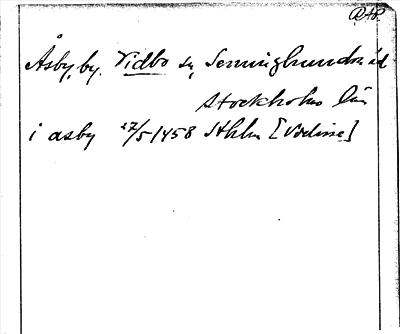 RAP.
Åsby, by. Vidbo sn, Seminghundra hd
Stockholms län
i asby 27/5 1458 Sthlm [Vidisse]